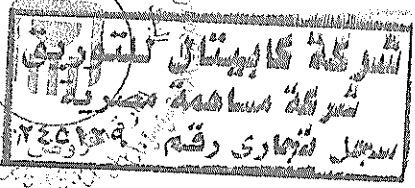 شركة كابيتال للتوريق
شركة مساهمة مصرية
سجل تجارى رقم